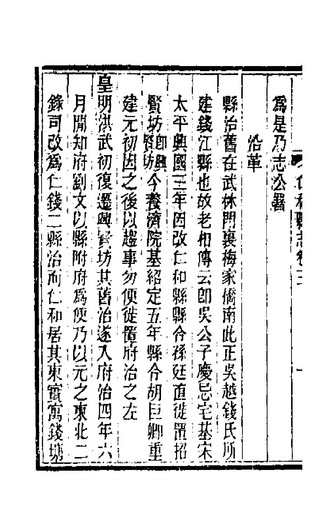 仁和縣志卷三
一
爲是乃志公署
沿革
縣治舊在武林門裏梅家僑南此正吳越錢氏所
建錢江縣也故老相傳云卽吳公子慶忌宅基宋
太平興國三年因改仁和縣縣令孫延直徙置招
賢坊卽興賢坊今養濟院基紹定五年縣令胡巨卿重
建元初因之後以趨事勿便徙置府治之左
皇明洪武初復遷興賢坊其舊治遂入府治四年六
月開知府劉文以縣附府爲便乃以元之東北二
錄司改爲仁錢二縣治而仁和居其東實寓錢塘